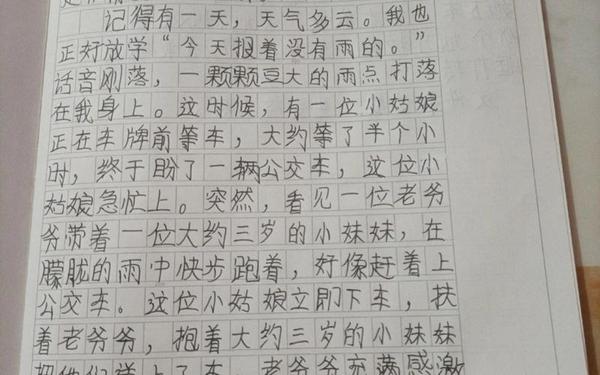 记得有一天，天气多云。我也
正好放学“今天报着没有雨的。”
话音刚落，一颗颗豆大的雨点打落
在我身上。这时候，有一位小姑娘
正在车牌前等车，大约等了半个小
时，终于盼了一辆公交车，这位小
姑娘急忙上。突然，看见一位老爷
爷带着一位大约三岁的小妹妹，在
朦胧的雨中快步跑着，好像赶着上
公交车。这位小姑娘立即下车，扶
着老爷爷，抱着大约三岁的小妹妹
把他们送上了车。老爷爷充满感激